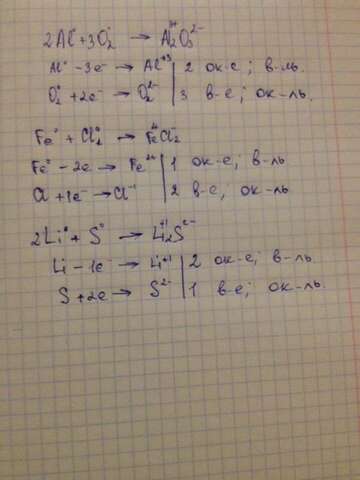 2Al° + 3O₂° → Al₂³⁺O₃²⁻
Al° - 3e⁻ → Al⁺³ | 2 ок-е; в-ль.
O₂° + 2e⁻ → O₂²⁻ | 3 в-е; ок-ль.
Fe° + Cl₂° → Fe²⁺Cl₂⁻
Fe° - 2e → Fe²⁺ | 1 ок-е; в-ль
Cl + 1e⁻ → Cl⁻¹ | 2 в-е; ок-ль
2Li° + S° → Li₂⁺¹S²⁻
Li - 1e⁻ → Li⁺¹ | 2 ок-е; в-ль.
S + 2e → S²⁻ | 1 в-е; ок-ль.